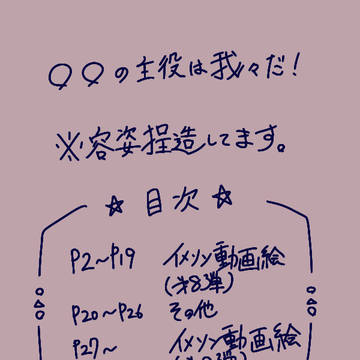 ○○の主役は我々だ!
※容姿捏造してます。
☆目次☆
P2～P19 イメソン動画絵
(第8弾)
P20～P26 その他
P27～ イメソン動画絵